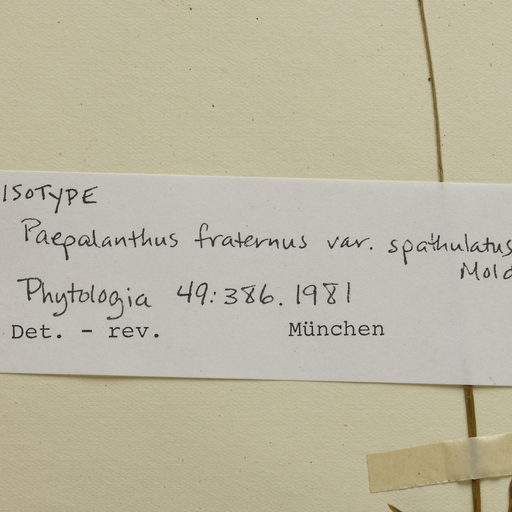 ISOTYPE
Paepalanthus fraternus var. spathulatus
Mold
Phytologia 49:386. 1981
Det. - rev. München